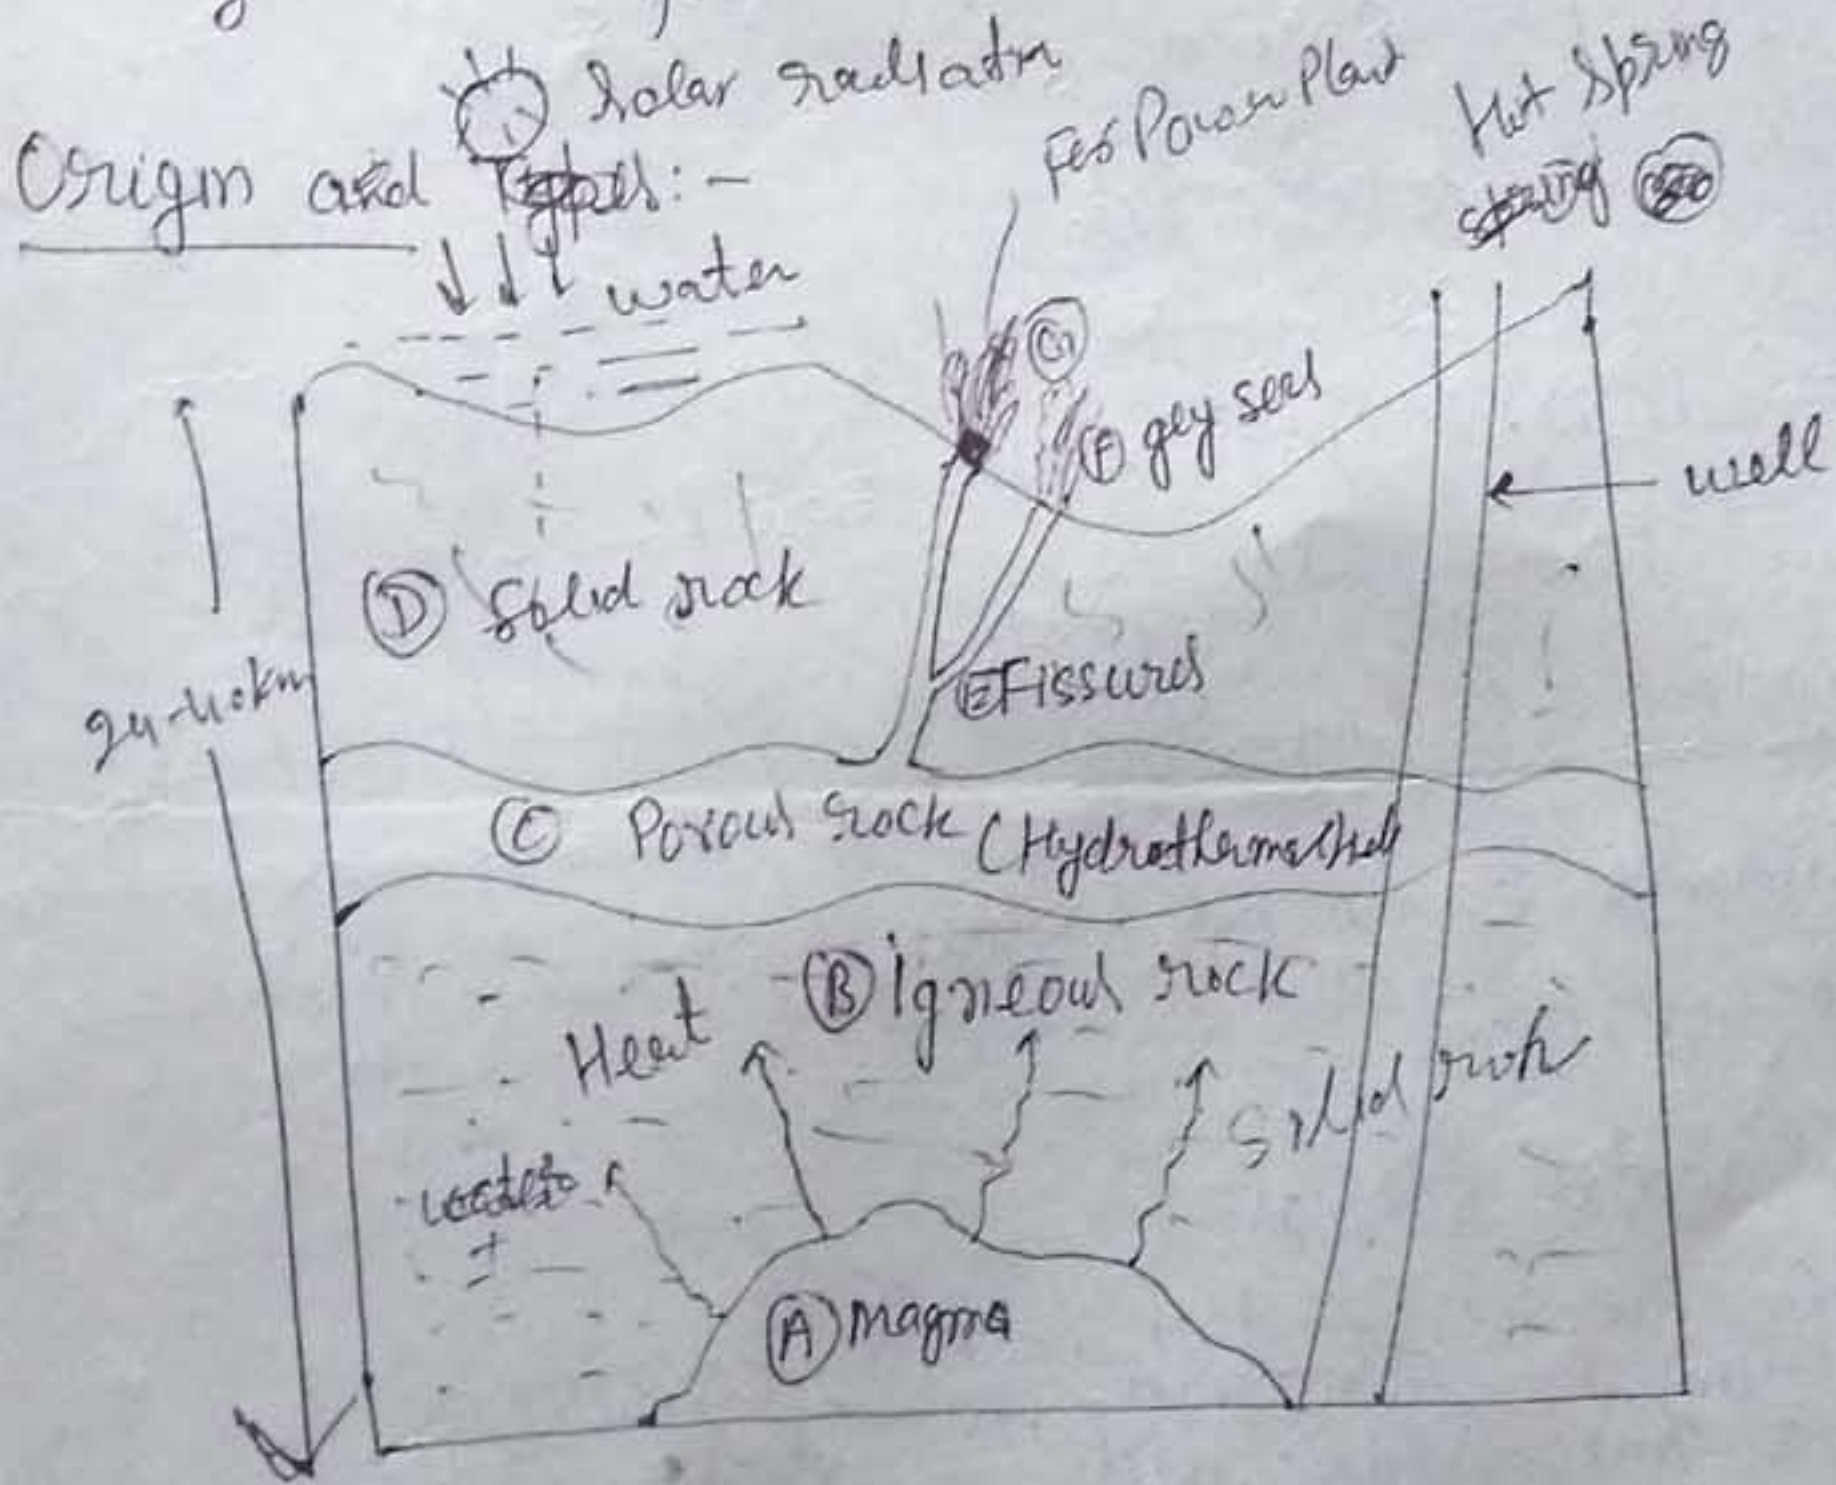 Solar radiatm
Origin and Types:-
For Power Plant
Hot Spring
water
G
F geysers
well
D Solid rock
24-40km
E Fissures
C Porous rock (Hydrothermal
B Igneous rock
Heat
Solid rock
water
A magma